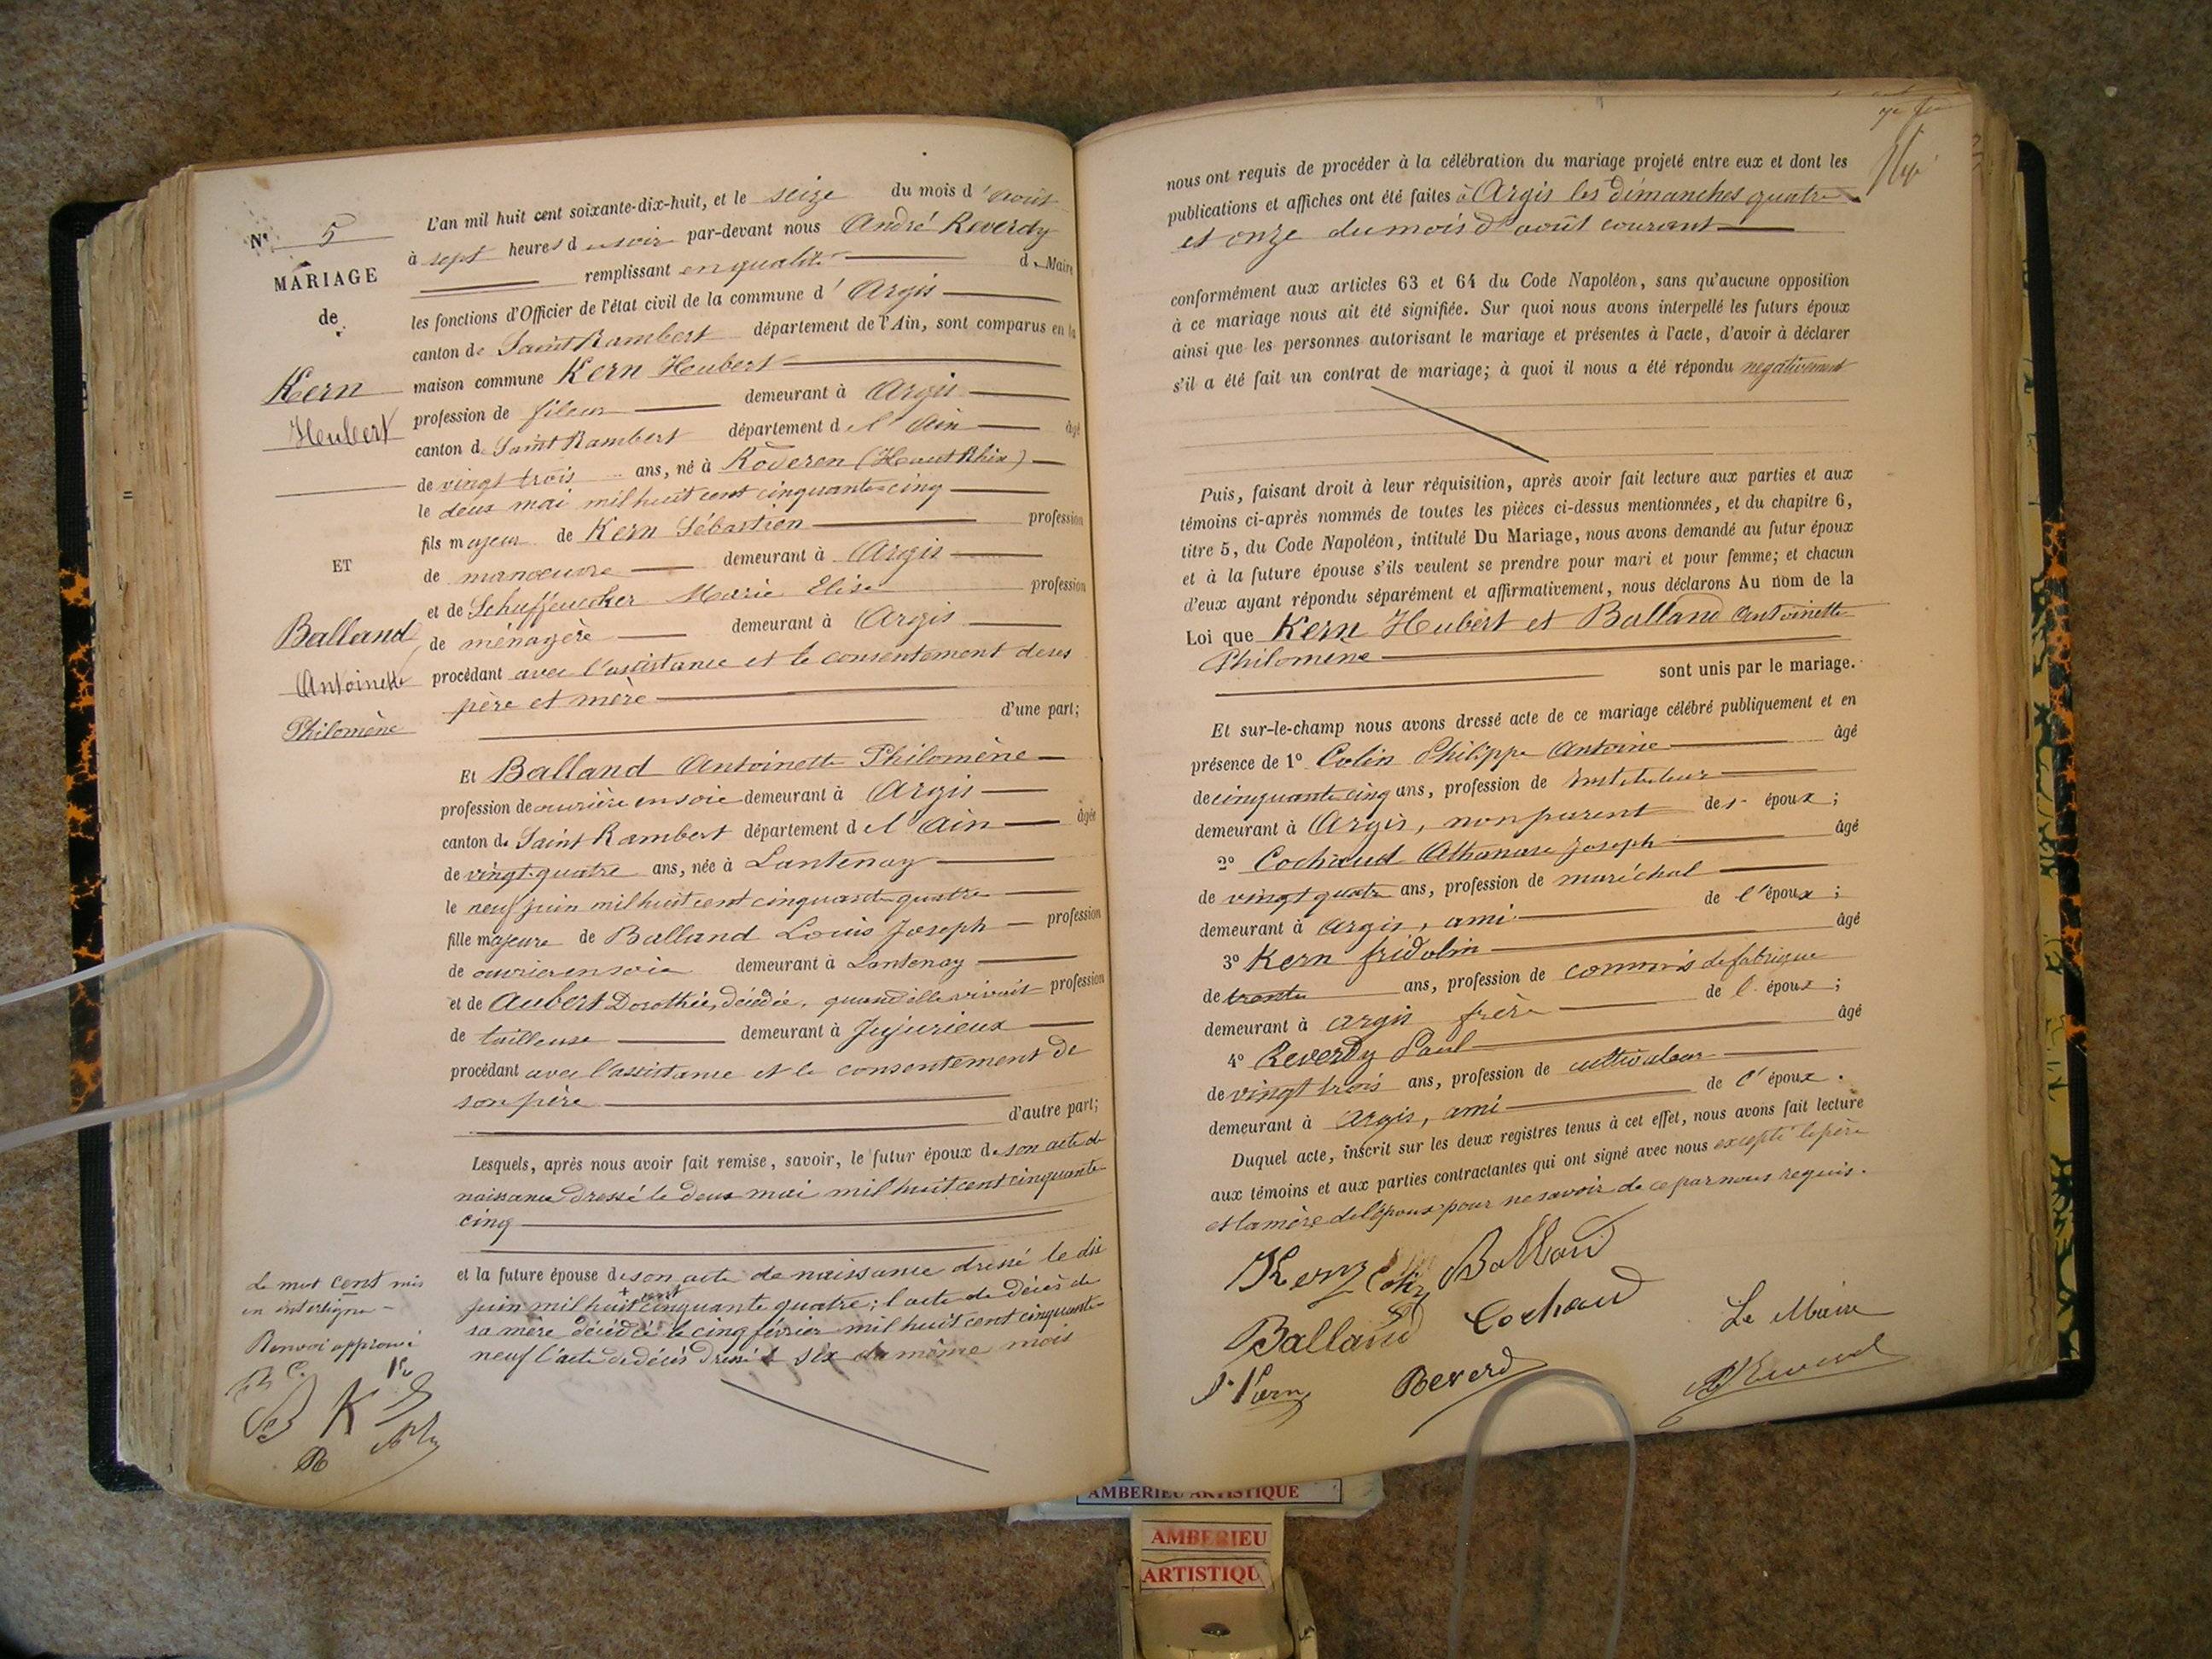 N° 5
MARIAGE
de
Kern
Heubert
ET
Balland
Antoinette
Philomène
L'an mil huit cent soixante-dix-huit, et le seize du mois d'août
à sept heures du soir par-devant nous André Reverdy
remplissant en qualité de Maire
les fonctions d'Officier de l'état civil de la commune d'Argis
canton de Saint Rambert département de l'Ain, sont comparus en la
maison commune Kern Heubert
profession de fileur demeurant à Argis
canton de Saint Rambert département de l'Ain âgé
de vingt trois ans, né à Roderen (Haut Rhin)
le deux mai mil huit cent cinquante-cinq
fils majeur de Kern Sébastien profession
de manoeuvre demeurant à Argis
et de Schuffenecker Marie Elise profession
de ménagère demeurant à Argis
procédant avec l'assistance et le consentement de ses
père et mère
d'une part;
Et Balland Antoinette Philomène
profession de ouvrière en soie demeurant à Argis
canton de Saint Rambert département de l'Ain âgée
de vingt-quatre ans, née à Lantenay
le neuf juin mil huit cent cinquante quatre
fille majeure de Balland Louis Joseph profession
de ouvrier en soie demeurant à Lantenay
et de Aubert Dorothée, décédée, quand elle vivait profession
de tailleuse demeurant à Jujurieux
procédant avec l'assistance et le consentement de
son père
d'autre part;
Lesquels, après nous avoir fait remise, savoir, le futur époux de son acte de
naissance dressé le deux mai mil huit cent cinquante
cinq
et la future épouse de son acte de naissance dressé le dix
juin mil huit cent cinquante quatre; l'acte de décès de
sa mère décédée le cinq février mil huit cent cinquante
neuf l'acte de décès dressé le six du même mois
Le mot cent mis
en interligne
Renvoi approuvé
nous ont requis de procéder à la célébration du mariage projeté entre eux et dont les
publications et affiches ont été faites à Argis les dimanches quatre
et onze du mois d'août courant
conformément aux articles 63 et 64 du Code Napoléon, sans qu'aucune opposition
à ce mariage nous ait été signifiée. Sur quoi nous avons interpellé les futurs époux
ainsi que les personnes autorisant le mariage et présentes à l'acte, d'avoir à déclarer
s'il a été fait un contrat de mariage; à quoi il nous a été répondu négativement
Puis, faisant droit à leur réquisition, après avoir fait lecture aux parties et aux
témoins ci-après nommés de toutes les pièces ci-dessus mentionnées, et du chapitre 6,
titre 5, du Code Napoléon, intitulé Du Mariage, nous avons demandé au futur époux
et à la future épouse s'ils veulent se prendre pour mari et pour femme; et chacun
d'eux ayant répondu séparément et affirmativement, nous déclarons Au nom de la
Loi que Kern Heubert et Balland Antoinette
Philomène
sont unis par le mariage.
Et sur-le-champ nous avons dressé acte de ce mariage célébré publiquement et en
présence de 1° Colin Philippe Antoine âgé
de cinquante cinq ans, profession de Instituteur
demeurant à Argis, non parent des époux;
2° Cochaud Athanase Joseph âgé
de vingt quatre ans, profession de maréchal
demeurant à Argis, ami de l'époux;
3° Kern fridolin âgé
de trente ans, profession de commis de fabrique
demeurant à argis frère de l'époux;
4° Reverdy Paul âgé
de vingt trois ans, profession de cultivateur
demeurant à Argis, ami de l'époux.
Duquel acte, inscrit sur les deux registres tenus à cet effet, nous avons fait lecture
aux témoins et aux parties contractantes qui ont signé avec nous excepté le père
et la mère de l'époux pour ne savoir de ce par nous requis.
Kern Colin Balland
Balland Cochaud Le Maire
F. Kern Reverdy A. Reverdy
AMBERIEU ARTISTIQUE
AMBERIEU
ARTISTIQU